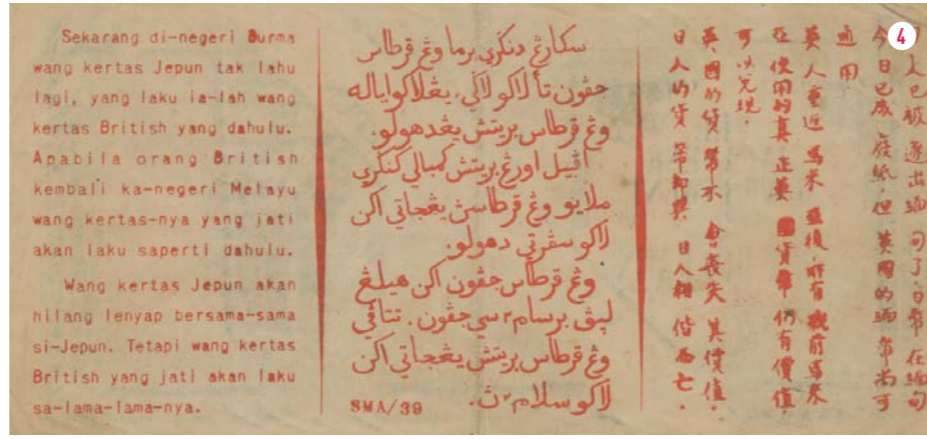 Sekarang di-negeri Burma
wang kertas Jepun tak lahu
lagi, yang laku ia-lah wang
kertas British yang dahulu.
Apabila orang British
kembali ka-negeri Melayu
wang kertas-nya yang jati
akan laku saperti dahulu.
Wang kertas Jepun akan
hilang lenyap bersama-sama
si-Jepun. Tetapi wang kertas
British yang jati akan laku
sa-lama-lama-nya.
سكارڠ دنڬري برما وڠ قرطاس
جڤون تأ لاكو لاڬي، يڠ لاكو اياله
وڠ قرطاس بريتش يڠ دهولو.
اڤبيل اورڠ بريتش كمبالي كنڬري
ملايو وڠ قرطاسڽ يڠ جاتي اكن
لاكو سڤرتي دهولو.
وڠ قرطاس جڤون اكن هيلڠ
لڽڤ برسام٢ سي جڤون. تتاڤي
وڠ قرطاس بريتش يڠ جاتي اكن
لاكو سلام٢ڽ.
SMA/39
人已被逐出緬甸了.日幣在緬甸
今日已成廢紙.但英國的緬幣尚可
通用.
英人重返馬來亞後.所有戰前馬來
亞使用的真正英國貨幣仍有價值.
可以兌現.
英國的貨幣不會喪失其價值.
日人的貨幣卻與日人相偕而亡.
4